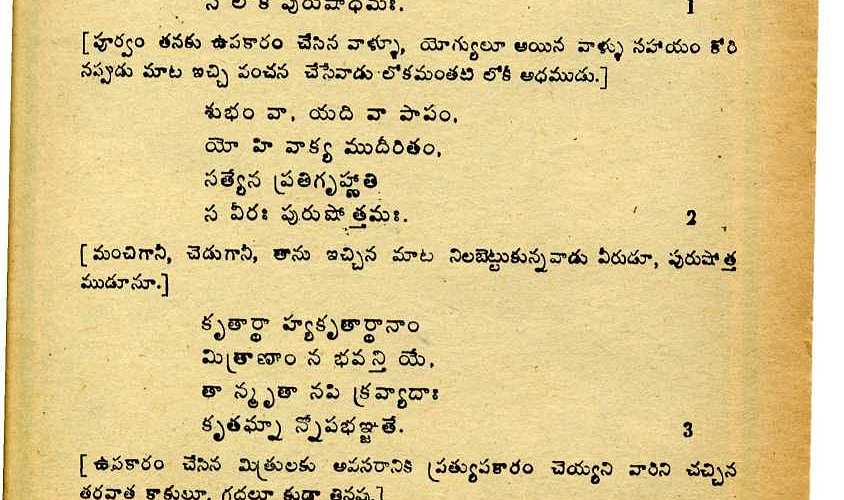 స లోకే పురుషాధమః. 1
[పూర్వం తనకు ఉపకారం చేసిన వాళ్ళూ, యోగ్యులూ అయిన వాళ్ళు సహాయం కోరి
నప్పుడు మాట ఇచ్చి పంచన చేసేవాడు లోకమంతటి లోకీ అధముడు.]
శుభం వా, యది వా పాపం,
యో హి వాక్య ముదీరితం,
సత్యేన ప్రతిగృహ్ణాతి
స వీరః పురుషోత్తమః. 2
[మంచిగానీ, చెడుగానీ, తాను ఇచ్చిన మాట నిలబెట్టుకున్నవాడు వీరుడూ, పురుషోత్త
ముడూనూ.]
కృతార్థా హ్యకృతార్థానాం
మిత్రాణాం న భవన్తి యే,
తా న్మృతా నపి క్రవ్యాదాః
కృతఘ్నా న్నోపభఞ్జతే. 3
[ఉపకారం చేసిన మిత్రులకు అవసరానికి ప్రత్యుపకారం చెయ్యని వారిని చచ్చిన
తరవాత కాకులూ, గద్దలూ కుడా తినవు.]